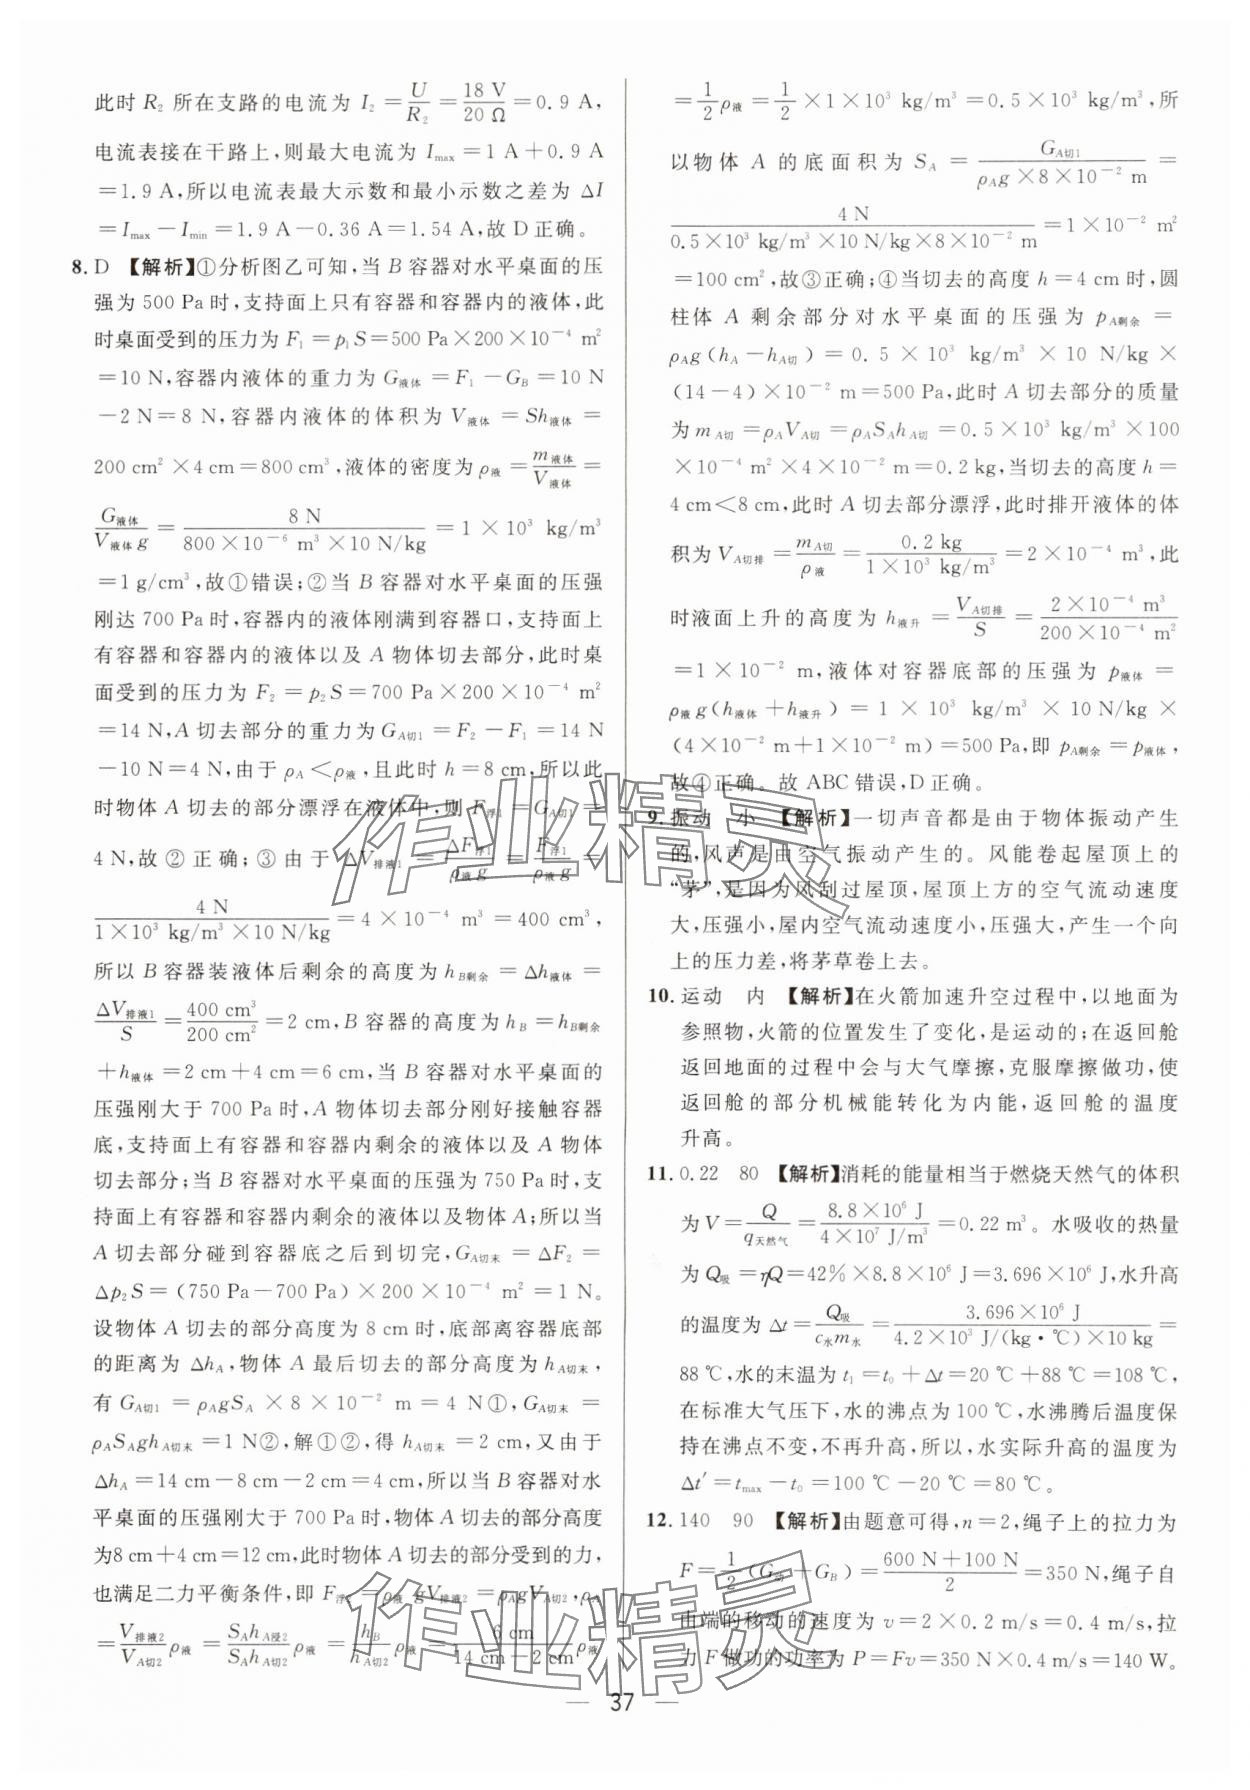 此时 R₂ 所在支路的电流为 I₂ = U/R₂ = 18 V/20 Ω = 0.9 A,
电流表接在干路上,则最大电流为 Imax = 1 A + 0.9 A
= 1.9 A,所以电流表最大示数和最小示数之差为 ΔI
= Imax − Imin = 1.9 A − 0.36 A = 1.54 A,故 D 正确。
8. D 【解析】①分析图乙可知,当 B 容器对水平桌面的压
强为 500 Pa 时,支持面上只有容器和容器内的液体,此
时桌面受到的压力为 F₁ = p₁S = 500 Pa × 200 × 10⁻⁴ m²
= 10 N,容器内液体的重力为 G液体 = F₁ − GB = 10 N
− 2 N = 8 N,容器内液体的体积为 V液体 = Sh液体 =
200 cm² × 4 cm = 800 cm³,液体的密度为 ρ液 = m液体/V液体 =
G液体/(V液体 g) = 8 N/(800 × 10⁻⁶ m³ × 10 N/kg) = 1 × 10³ kg/m³
= 1 g/cm³,故①错误;②当 B 容器对水平桌面的压强
刚达 700 Pa 时,容器内的液体刚满到容器口,支持面上
有容器和容器内的液体以及 A 物体切去部分,此时桌
面受到的压力为 F₂ = p₂S = 700 Pa × 200 × 10⁻⁴ m²
= 14 N,A 切去部分的重力为 GA切1 = F₂ − F₁ = 14 N
− 10 N = 4 N,由于 ρA < ρ液,且此时 h = 8 cm,所以此
时物体 A 切去的部分漂浮在液体中,则 F浮1 = GA切1 =
4 N,故②正确;③由于 ΔV排液1 = ΔF浮1/(ρ液 g) = F浮1/(ρ液 g) =
4 N/(1 × 10³ kg/m³ × 10 N/kg) = 4 × 10⁻⁴ m³ = 400 cm³,
所以 B 容器装液体后剩余的高度为 hB剩余 = Δh液体 =
ΔV排液1/S = 400 cm³/200 cm² = 2 cm,B 容器的高度为 hB = hB剩余
+ h液体 = 2 cm + 4 cm = 6 cm,当 B 容器对水平桌面的
压强刚大于 700 Pa 时,A 物体切去部分刚好接触容器
底,支持面上有容器和容器内剩余的液体以及 A 物体
切去部分;当 B 容器对水平桌面的压强为 750 Pa 时,支
持面上有容器和容器内剩余的液体以及物体 A;所以当
A 切去部分碰到容器底之后到切完,GA切末 = ΔF₂ =
Δp₂S = (750 Pa − 700 Pa) × 200 × 10⁻⁴ m² = 1 N。
设物体 A 切去的部分高度为 8 cm 时,底部离容器底部
的距离为 ΔhA,物体 A 最后切去的部分高度为 hA切末,
有 GA切1 = ρAgSA × 8 × 10⁻² m = 4 N①,GA切末 =
ρASAghA切末 = 1 N②,解①②,得 hA切末 = 2 cm,又由于
ΔhA = 14 cm − 8 cm − 2 cm = 4 cm,所以当 B 容器对水
平桌面的压强刚大于 700 Pa 时,物体 A 切去的部分高度
为8 cm + 4 cm = 12 cm,此时物体 A 切去的部分受到的力,
也满足二力平衡条件,即 F浮2 = ρ液 gV排液2 = ρAgVA切2,ρA
= V排液2/VA切2 ρ液 = SAhA浸2/SAhA切2 ρ液 = hB/hA切2 ρ液 = 6 cm/(14 cm − 2 cm) ρ液
= 1/2 ρ液 = 1/2 × 1 × 10³ kg/m³ = 0.5 × 10³ kg/m³,所
以物体 A 的底面积为 SA = GA切1/(ρAg × 8 × 10⁻² m) =
4 N/(0.5 × 10³ kg/m³ × 10 N/kg × 8 × 10⁻² m) = 1 × 10⁻² m²
= 100 cm²,故③正确;④当切去的高度 h = 4 cm 时,圆
柱体 A 剩余部分对水平桌面的压强为 pA剩余 =
ρAg(hA − hA切) = 0.5 × 10³ kg/m³ × 10 N/kg ×
(14 − 4) × 10⁻² m = 500 Pa,此时 A 切去部分的质量
为 mA切 = ρAVA切 = ρASAhA切 = 0.5 × 10³ kg/m³ × 100
× 10⁻⁴ m² × 4 × 10⁻² m = 0.2 kg,当切去的高度 h =
4 cm < 8 cm,此时 A 切去部分漂浮,此时排开液体的体
积为 VA切排 = mA切/ρ液 = 0.2 kg/(1 × 10³ kg/m³) = 2 × 10⁻⁴ m³,此
时液面上升的高度为 h液升 = VA切排/S = 2 × 10⁻⁴ m³/(200 × 10⁻⁴ m²)
= 1 × 10⁻² m,液体对容器底部的压强为 p液体 =
ρ液 g(h液体 + h液升) = 1 × 10³ kg/m³ × 10 N/kg ×
(4 × 10⁻² m + 1 × 10⁻² m) = 500 Pa,即 pA剩余 = p液体,
故④正确。故 ABC 错误,D 正确。
9. 振动 小 【解析】一切声音都是由于物体振动产生
的,风声是由空气振动产生的。风能卷起屋顶上的
“茅”,是因为风刮过屋顶,屋顶上方的空气流动速度
大,压强小,屋内空气流动速度小,压强大,产生一个向
上的压力差,将茅草卷上去。
10. 运动 内 【解析】在火箭加速升空过程中,以地面为
参照物,火箭的位置发生了变化,是运动的;在返回舱
返回地面的过程中会与大气摩擦,克服摩擦做功,使
返回舱的部分机械能转化为内能,返回舱的温度
升高。
11. 0.22 80 【解析】消耗的能量相当于燃烧天然气的体积
为 V = Q/q天然气 = 8.8 × 10⁶ J/(4 × 10⁷ J/m³) = 0.22 m³。水吸收的热量
为 Q吸 = ηQ = 42% × 8.8 × 10⁶ J = 3.696 × 10⁶ J,水升高
的温度为 Δt = Q吸/(c水m水) = 3.696 × 10⁶ J/(4.2 × 10³ J/(kg·℃) × 10 kg) =
88 ℃,水的末温为 t₁ = t₀ + Δt = 20 ℃ + 88 ℃ = 108 ℃,
在标准大气压下,水的沸点为 100 ℃,水沸腾后温度保
持在沸点不变,不再升高,所以,水实际升高的温度为
Δt′ = tmax − t₀ = 100 ℃ − 20 ℃ = 80 ℃。
12. 140 90 【解析】由题意可得,n = 2,绳子上的拉力为
F = 1/2 (G动 + GB) = (600 N + 100 N)/2 = 350 N,绳子自
由端的移动的速度为 v = 2 × 0.2 m/s = 0.4 m/s,拉
力 F 做功的功率为 P = Fv = 350 N × 0.4 m/s = 140 W。
— 37 —
作业精灵
作业精灵